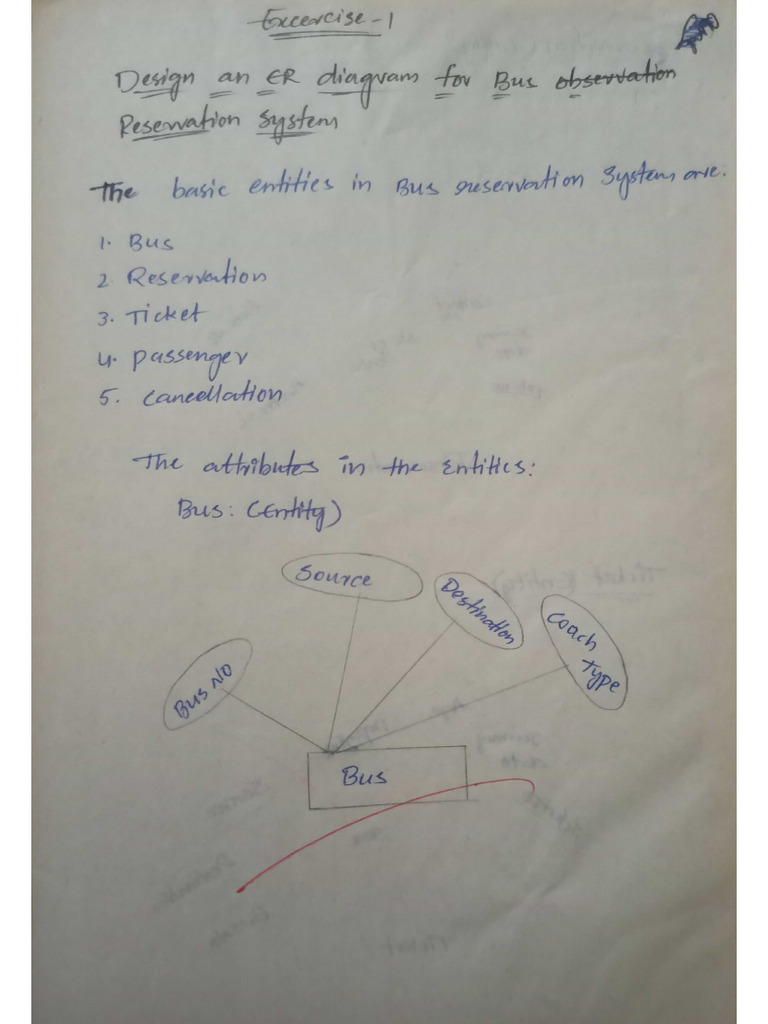 Excercise-1
Design an ER diagram for Bus observation
Reservation System
The basic entities in Bus reservation System are.
1. Bus
2. Reservation
3. Ticket
4. passenger
5. Cancellation
The attributes in the Entities:
Bus: (Entity)
Source
Destination
Coach
Type
Bus No
Bus